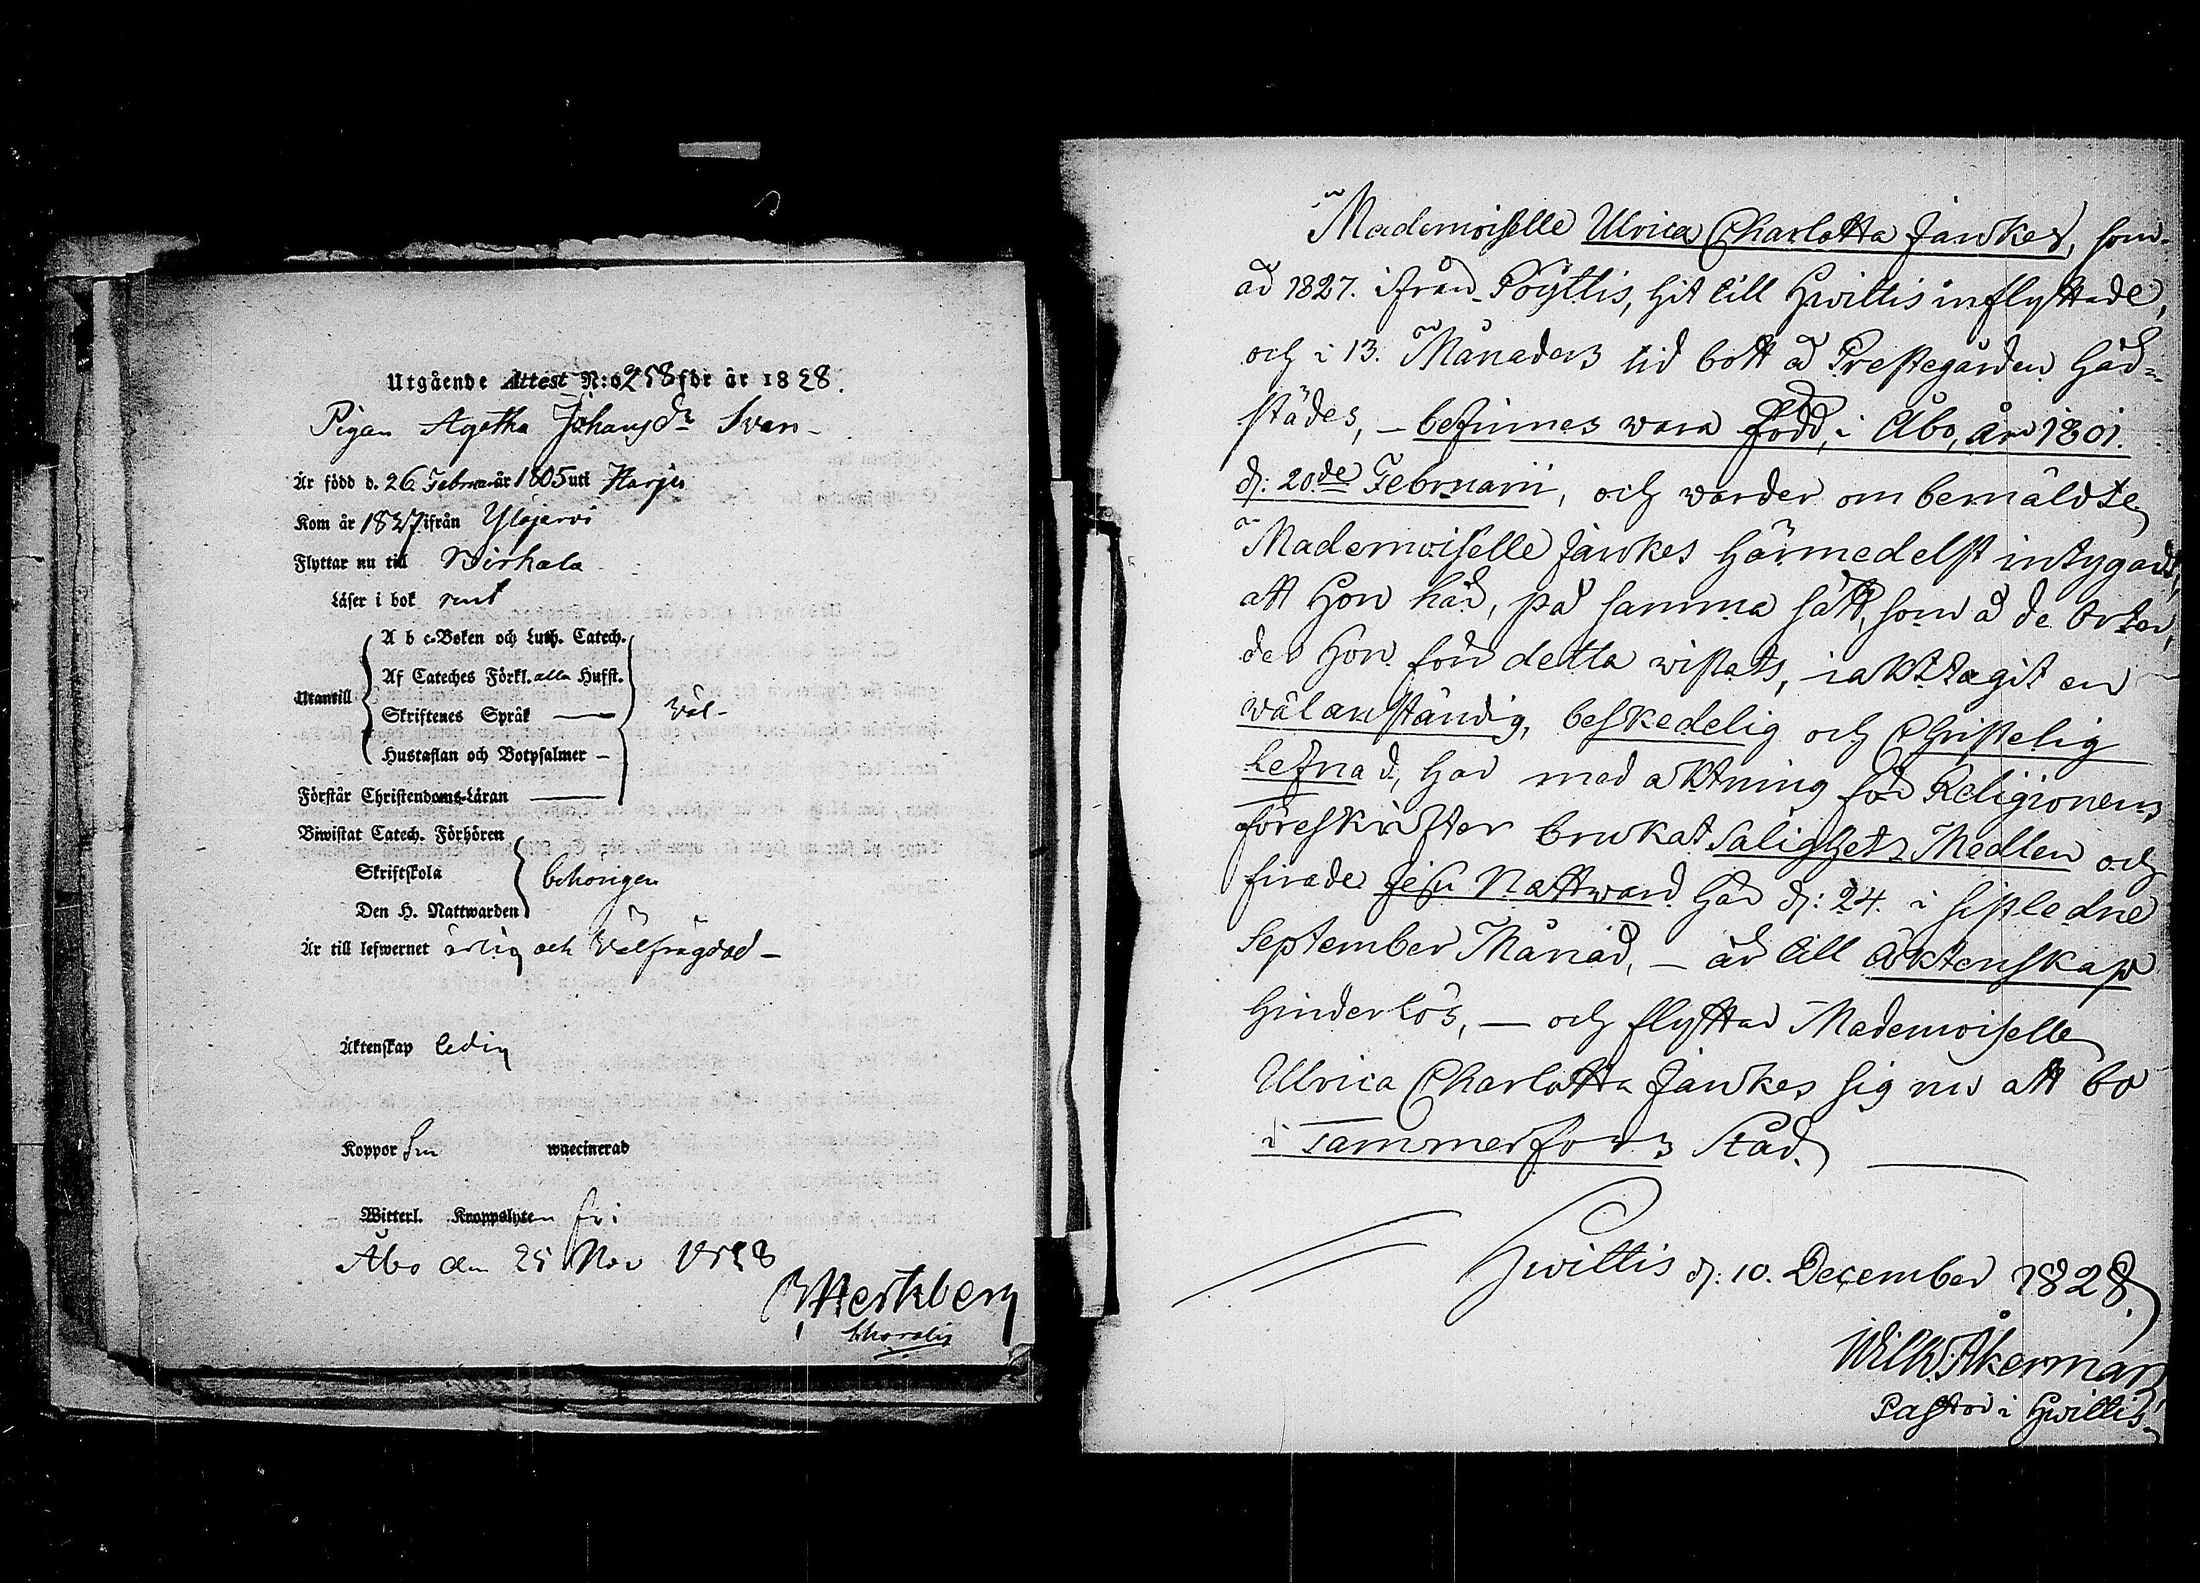 Utgående Attest N:o 258 för år 1828.
Pigan Agatha Johansdr Svan –
Är född d. 26 Februar år 1805 uti Harju
Kom år 1827 ifrån Ylöjärvi
Flyttar nu till Birkala
Läser i bok rent
A b c-Boken och Luth. Catech.
Af Cateches Förkl. alla Hufst.
Utantill
Skriftenes Språk —
Väl –
Hustaflan och Botpsalmer –
Förstår Christendoms-Läran —
Biwistat Catech. Förhören
Skriftskola
behörigen
Den H. Nattwarden
Är till lefwernet ärlig och Välfrägdad –
Äktenskap ledig
Koppor
waccinerad
Witterl. Kroppslyten fri
Åbo den 25 Nov 1828

Mademoiselle Ulrica Charlotta Jankes, som
år 1827. ifrån Pöyttis, hit till Hwittis inflyttade,
och i 13. Månaders tid bott å Prestegården här-
städes, – befinnes wara född, i Åbo, år 1801.
d: 20de Februarii, och warder om bemälde
Mademoiselle Jankes härmedelst intygadt,
att Hon här, på samma sätt, som å de orter,
der Hon förr detta wistats, iakttagit en
wälanständig, beskedelig och Christelig
lefnad, har med aktning för Religionens
föreskrifter brukat Salighets Medlen och
firade Jesu Nattward här d: 24. i sistledne
September Månad, – är till äktenskap
hinderlös, – och flyttar Mademoiselle
Ulrica Charlotta Jankes sig nu att bo
i Tammerfors Stad. —
Hwittis d: 10. December 1828.
Wilh. Åkerman
Pastor i Hwittis.